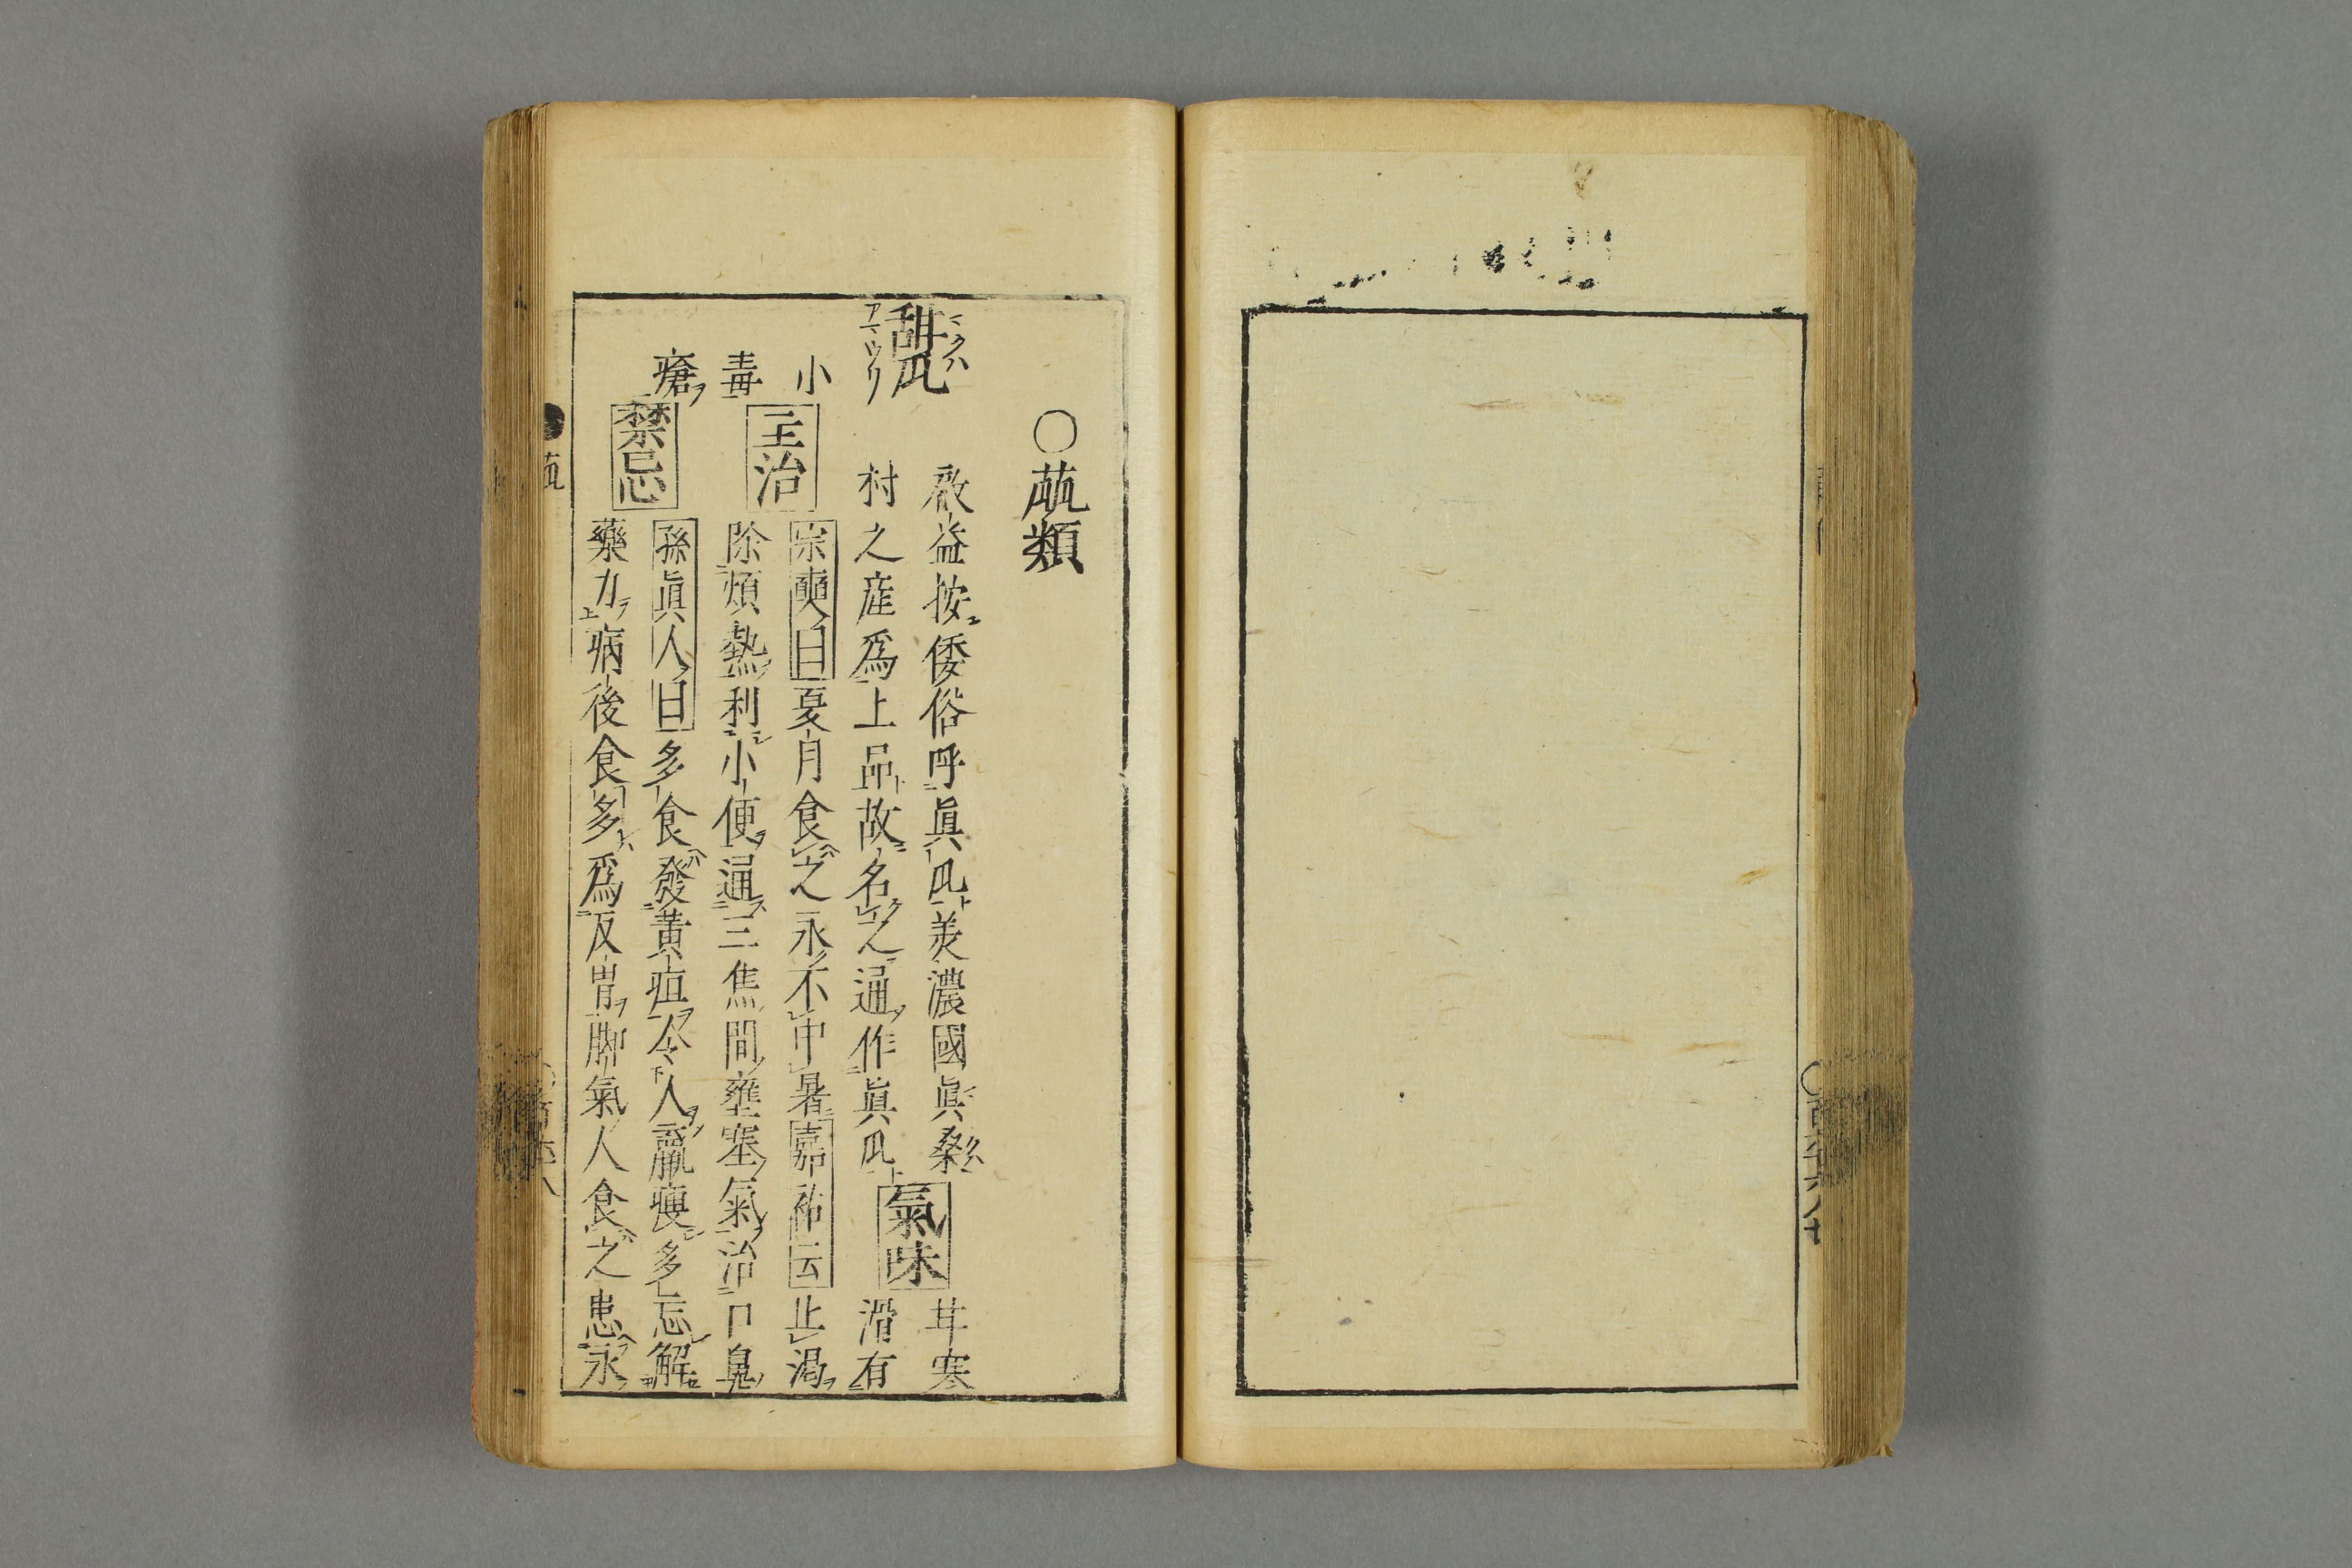 ○蓏類
甜瓜
アマウリ
啟益按倭俗呼眞瓜美濃國眞桑
村之産爲上品故名之通作眞瓜
氣味
甘寒
滑有
小
毒
主治
宗奭曰夏月食之永不中暑嘉祐云止渇
除煩熱利小便通三焦間壅塞氣治口鼻
瘡
禁忌
孫眞人曰多食發黄疸令人羸痩多忘解
藥力病後食多爲反胃脚氣人食之患永